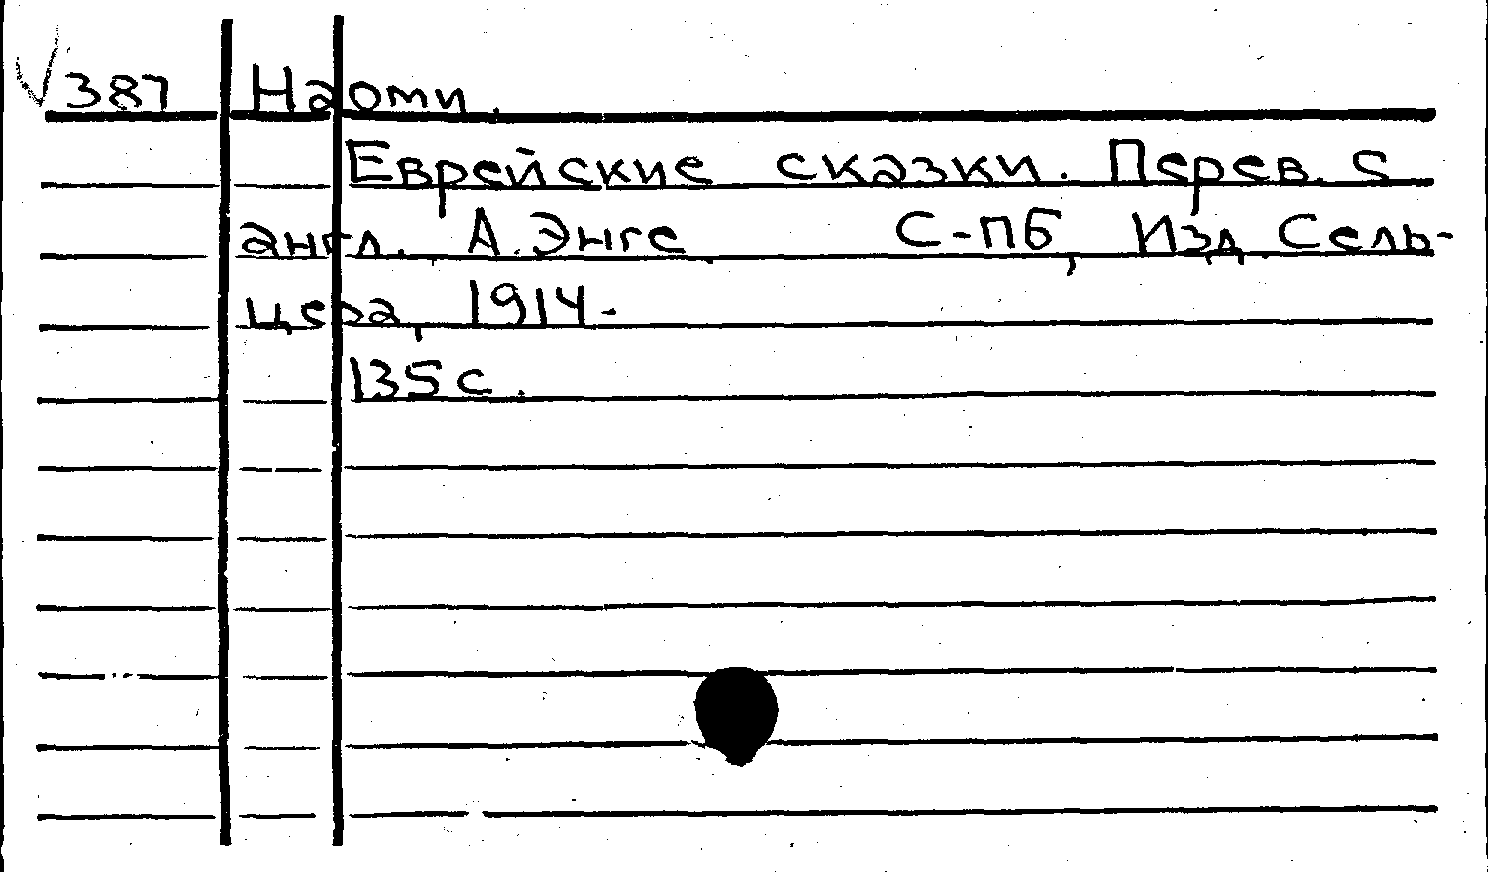 387 Наоми.
Еврейские сказки. Перев. с
англ. А. Энге. С-Пб, Изд. Сель-
цера, 1914.-
135 с.